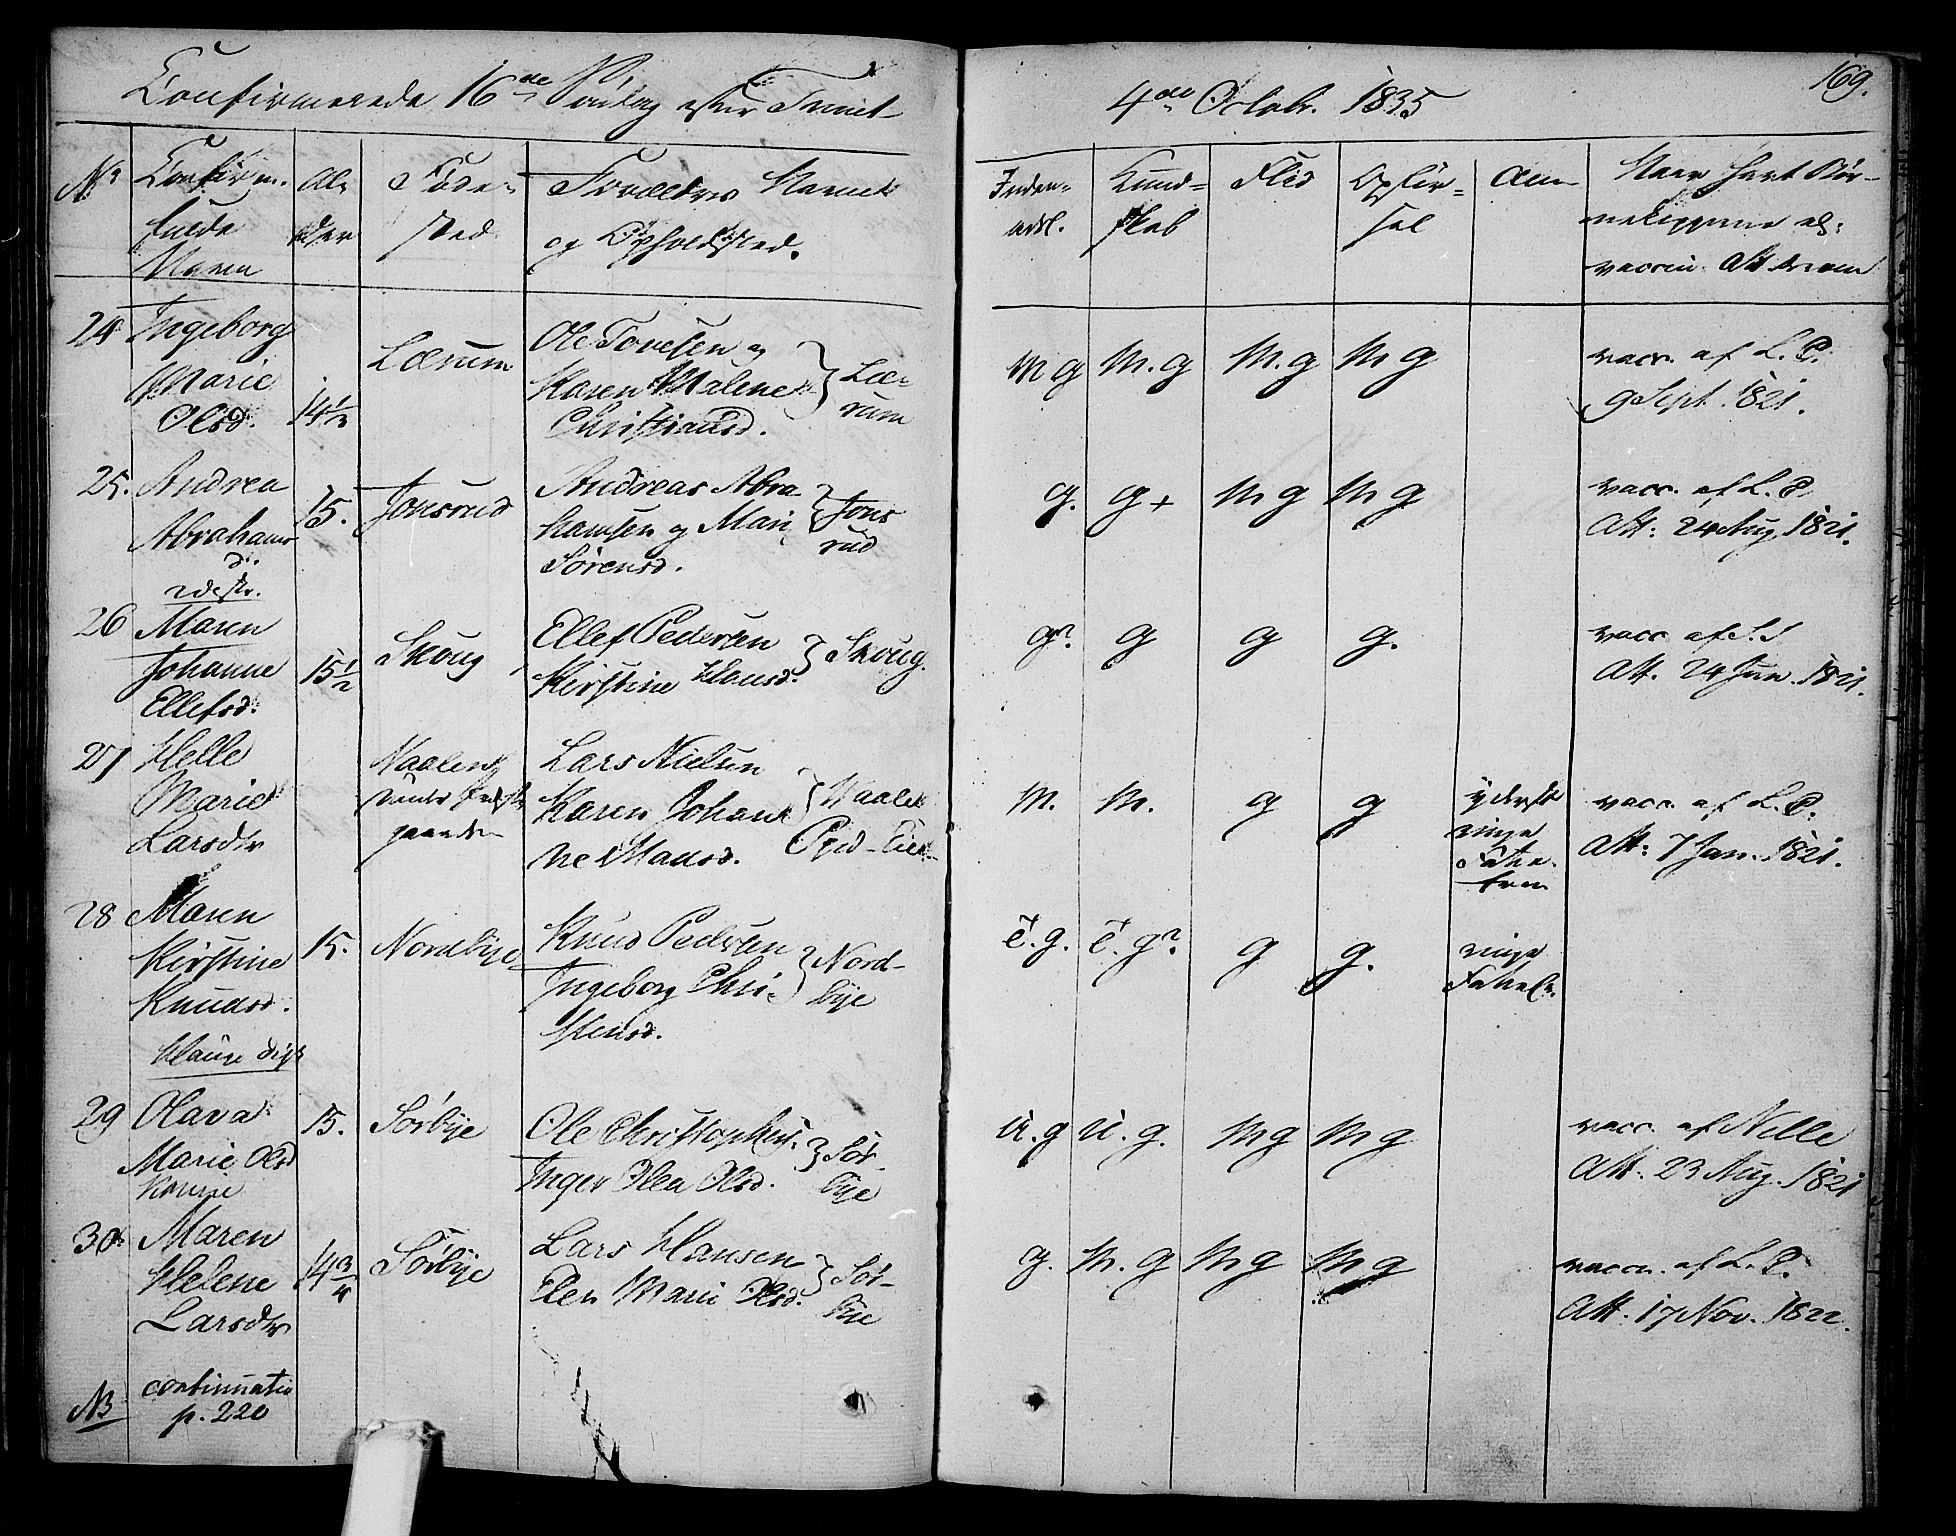 Confirmerede 16de Søndag efter Trinit
4de Octobr. 1835
169.
No
Confirm.
fulde
Navn
Al-
der
Føde-
sted
Forældres Navne
og Opholdssted.
Inden-
adsl.
Kund-
skab
Flid
Opfør-
sel
Anm
Naar havt Bør-
nekopperne el.
vaccin. Att derom
24
Ingeborg
Marie
Olsd.
14½
Lærum
Ole Tovesen og
Karen Malene
Christiansd.
Læ-
rum
mg
M.g
M.g
Mg
vacc. af L. P.
9 Sept 1821.
25.
Andrea
Abrahams
d.
15.
Jonsrud
Andreas Abra
hamsen og Mari
Sørensd.
Jons
rud
g.
g+
Mg
Mg
vacc. af L. P
Att: 24 Aug. 1821.
26
Maren
Johanne
Ellefsd.
15½
Skoug
Ellef Pedersen
Kirstine Hansd.
Skoug.
g?
g
g
g.
vacc af S. S
Att. 24 Jun. 1821.
27
Helle
Marie
Larsdtr
Lars Nielsen
Karen Johan
ne Madsd.
M.
M.
g
g
yderst
ringe
vacc. af L. P.
Att: 7 Jan. 1821.
28
Maren
Kirstine
Knudsd.
15.
Nordbye
Knud Pedersen
Ingeborg Chri-
stensd.
Nord-
bye
T.g.
T.g?
g
g.
ringe
29
Olava
Marie Olsd
15.
Sørbye
Ole Christophers.
Inger Olea Olsd.
Sør-
bye
U.g
U.g.
Mg
Mg
vacc. af Nille
Att. 23 Aug. 1821
30
Maren
Helene
Larsdtr
14¾
Sørbye
Lars Hansen
Elen Marie Olsd.
Sør-
bye
g.
M.g
Mg
Mg
vacc. af L. P.
Att. 17 Nov. 1822.
NB
continuatio
p. 220